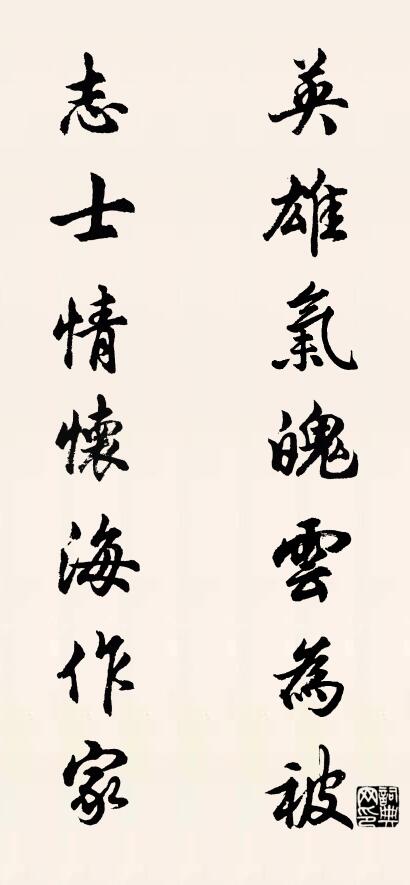 英雄氣魄雲為被
志士情懷海作家
詞典网印